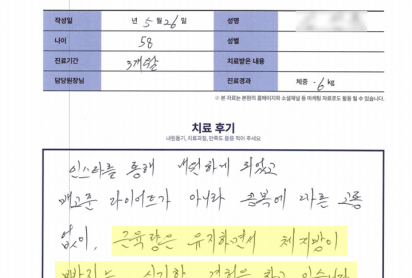 작성일 년 5월 26일 성명
나이 58 성별
진료기간 3개월 치료받은 내용
담당원장님 진료경과 체중 -6kg
※ 본 자료는 본원의 홈페이지와 소셜채널 등 마케팅 자료로도 활용 될 수 있습니다.
치료 후기
내원동기, 치료과정, 만족도 등을 적어 주세요
인스타를 통해 내원하게 되었고
다이어트가 아니라 공복에 따른 고통
없이, 근육량은 유지하면서 체지방이
빠지는 신기한 경험을 하고 있습니다